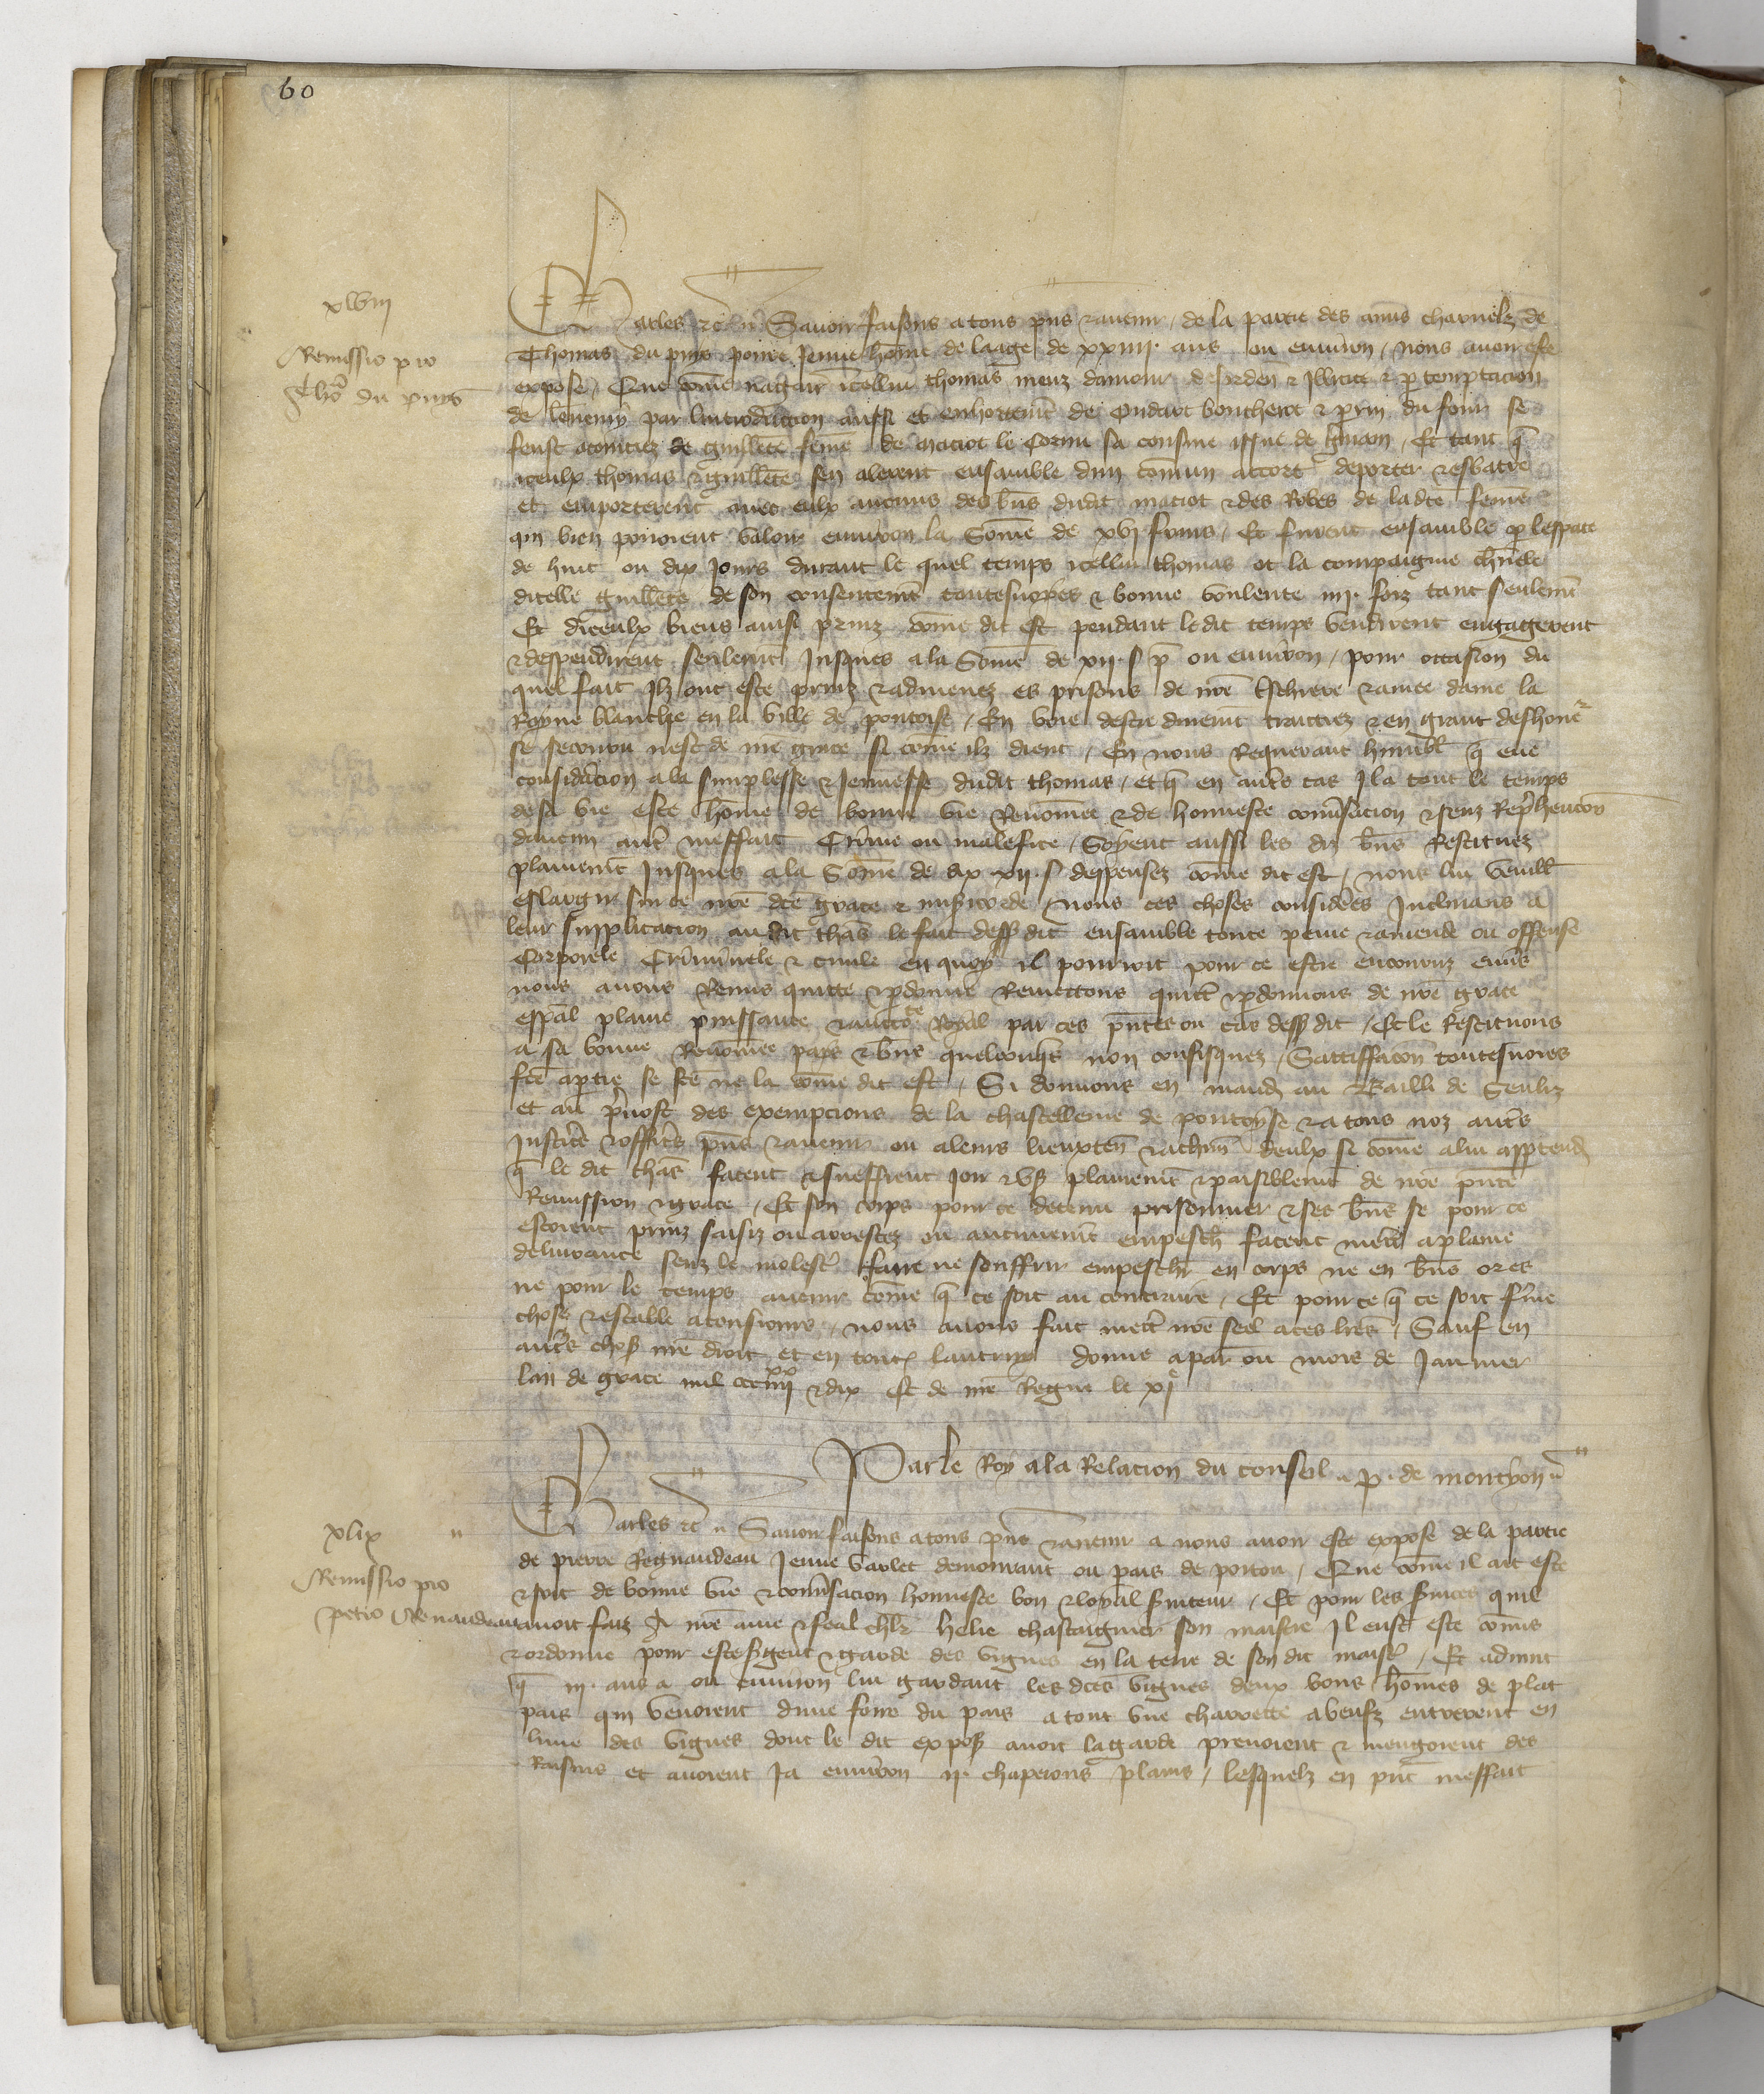 60
xlviii
Remissio pro
Tho du puys
Charles etc Savoir faisons a tous pns et avenir, de la partie des amis charnelz de
Thomas du puis povre jeune home de laage de xxiiii ans ou environ, nous avoir este
expose, Que come nagair icellui thomas meuz damour desorden et illicite et p temptacion
de lenemy par lintroduction aussi et enhortemt de Oudart boucherot et prin du four se
feust acointiez de guillete feme de maciot le Cornu sa cousine issue de gmain, Et tant q
iceulx thomas et guillete sen alerent ensamble dun comun accort deporter et esbatre
et emporterent avec eulx aucuns des bns dudit maciot et des Robes de ladte feme
qui bien povoient valoir environ la Some de xvi frans, Et furent ensamble p lespace
de huit ou dix jours durant le quel temps icellui thomas ot la compaignie chnele
dicelle guillete de son consentemt toutesvoyes et bonne voulente iiii foiz tant seulemt
Et diceulx biens ainsi prinz come dit est pendant ledit temps vendirent engagerent
et despendirent seulemt jusques a la Some de xii s p ou environ, pour occasion du
quel fait ilz ont este prinz et admenez es prisons de nre treschiere et amee dame la
Royne blanche en la ville de pontoise, En voie destre durement traictiez et en grant deshoneur
se secouru nest de nre grace si come ilz dient, En nous Requerant humbl q eue
consideracion a la simplesse et jeunesse dudit thomas, et q en autrs cas il a tout le temps
de sa vie este home de bonne vie Renomee et de honneste conusacion et senz Reprhencion
daucun autr meffait Crime ou malefice, Soyent aussi les diz bns Restituez
plainemt jusques a la Some de dix xii s despensez come dit est, nous lui veuill
eslargir sur ce nre dce grace et misicorde, Nous ces choses considres Inclinans a
leur supplicacion au dit thas le fait dessus dit ensamble toute peine et amende ou offense
Corporele Criminele et civile en quoy il pourroit pour ce estre encouruz envs
nous avons Remis quitte et pdonne Remettons quitt et pdonnons de nre grace
espal plaine puissance et aucto te Royal par ces pntes ou cas dess dit, Et le Restituons
a sa bonne Renomee pays et bns quelconqs non confisquez, Sattiffacon toutesvoies
fce a ptie se fce ne la come dit est, Si donnons en mand au Bailli de Senliz
et au prvost des exempcions de la chastellenie de pontoyse et a tous noz autrs
Justicrs et officrs pns et avenir ou a leurs lieuxten et a chun deulx si come a lui apptendr
q le dit thas facent et sueffrent joir et us plainemt et paisiblemt de nre pnte
Remission et grace, Et son corps pour ce detenu prisonnier et ses bns se pour ce
estoient prinz saisiz ou arrestez ou aucunemt empesch facent mettr a plaine
delivrance senz le molestr faire ne souffrir empeschr en corps ne en bns ores
ne pour le temps avenir come q ce soit au contraire, Et pour ce q ce soit ferme
chose et estable a tousiours, nous avons fait mettr nre seel a ces lres, Sauf en
autrs choses nre droit et en toutes lautruy donne a par ou mois de Janvier
lan de grace mil ccc iiii xx et dix Et de nre Regne le xi e
Par le Roy a la Relacion du conseil p. de montyon
xlix
Remissio pro
petro Renaudeau
Charles etc Savoir faisons a tous pns et avenir a nous avoir este expose de la partie
de pierre Regnaudeau jeune varlet demourant ou pais de poitou, Que come il ait este
et soit de bonne vie et conusacion honneste bon et loyal suiteur, Et pour les suices quil
avoit faiz a nre ame et feal chlr helie chasteigner son maistre Il eust este comis
et ordonne pour estre sgent et garde des vignes en la terre de son dit maistr, Et advint
q iii ans a ou environ lui gardant les dces vignes deux bons homes de plat
pais qui venoient dune foire du pais a tout une charrette a beufz entrerent en
lune des vignes dont le dit expos avoit la garde prenoient et mengoient des
Raisins et avoient ja environ ii chaperons plains, lesquelz en pnt meffait